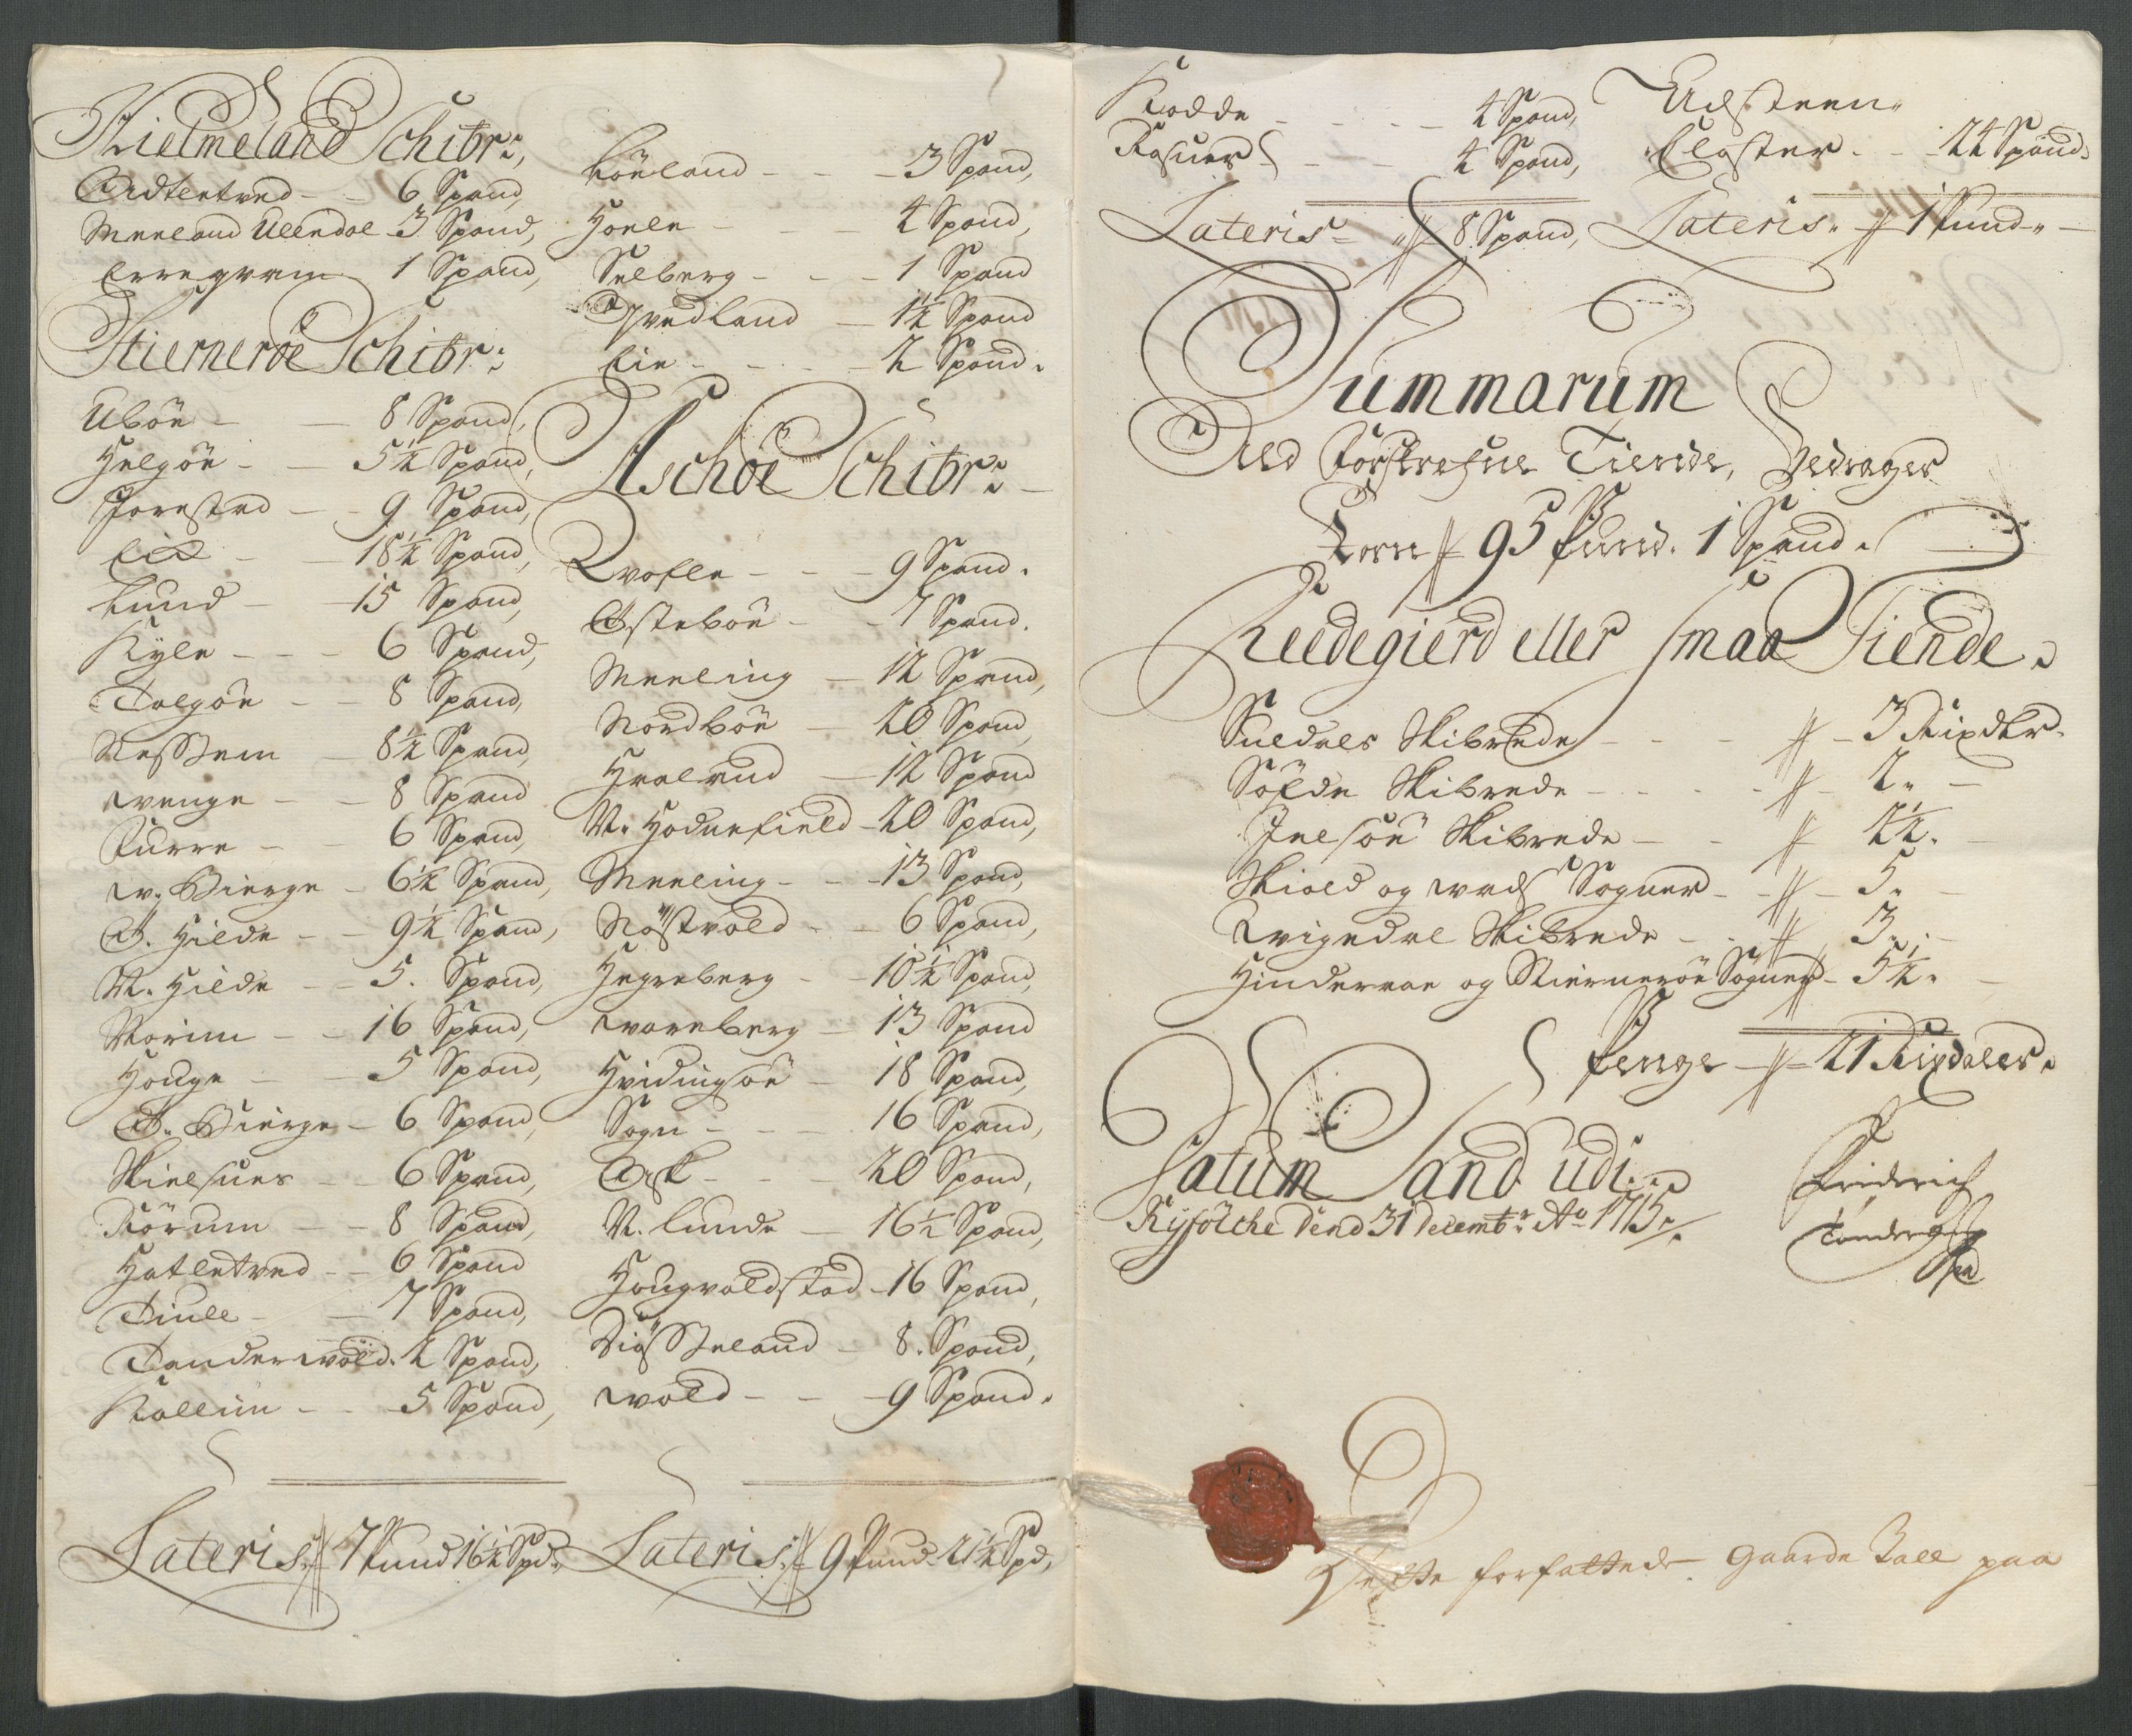 Hielmeland Schibr:
Adtletved - - 6 Spand,
Meeland Ulendal 3 Spand,
Erregrem 1 Spand,
Stierneröe Schibr:
Uböe - - 8 Spand,
Helgöe - - 5½ Spand,
Jorestad - - 9 Spand,
Eid - - 18½ Spand,
Lund - - 15 Spand,
Kyle - - - 6 Spand,
Talgöe - - 8 Spand,
Nessem - 8½ Spand,
Wenge - - 8 Spand
Furre - - 6 Spand,
W. Bierge - 6½ Spand,
Ø. Hilde - - 9½ Spand,
N. Hilde - - 5. Spand,
Norim - - 16 Spand,
Houge - - 5 Spand,
Ø. Bierge - 6 Spand,
Skielsnes - - 6 Spand,
Körum - - 8 Spand,
Hatletved - - 6 Spand
Tiull - - 7 Spand,
Tanderwold. 2 Spand,
Kallim - - 5 Spand,
Lateris 7 Pund 16½ Spd.
Löeland - - - 3 Spand,
Hoele - - - 4 Spand,
Selberg - - - 1 Spand
Tvedland - 1½ Spand
Eie - - - - 2 Spand.
Aschöe Schibr: -
Qvafle - - - 9 Spand.
Østeböe - - 7 Spand.
Meeling - 12 Spand,
Nordböe - 20 Spand,
Hvalvud - 12 Spand
N. Hodnefield - 20 Spand,
Meeling - - - 13 Spand,
Nöstvold - - 6 Spand,
Hegreberg - - 10½ Spand,
Wareberg - 13 Spand
Hvidingsöe - 18 Spand,
Sogn - - - 16 Spand,
Ask - - - 20 Spand,
N. Lunde - 16½ Spand,
Hougvaldstad - 16 Spand,
Diösseland - 8. Spand,
Wold - - - 9 Spand.
Lateris 9 Pund 21½ Spd,
Kodde - - - - 4 Spand,
Fosnes - - - 4 Spand,
Lateris 8 Spand,
Udsteen
Closter - - 24 Spand.
Lateris. 1 Pund
Summarum
All Forskrefne Tiende, Bedrager
Korn 95 Pund. 1 Spand.
Reedegierd eller smaa Tiende.
Suldals Skibrede - - - 3 Rixdlr.
Söfde Skibrede - - - - 2. -
Jelsöe Skibrede - - 2½. -
Skiold og Wads Sogner - - 5. -
Qvigedal Skibrede - - 3. -
Hinderaae og Stiernerøe Sogner - 5½. -
Penge - 21 Rixdaler.
Datum Sand udi
Ryfölche dend 31 Decembr: Ao 1715.
Friderich
Tønder
Dette forfattede Gaarde Tall paa